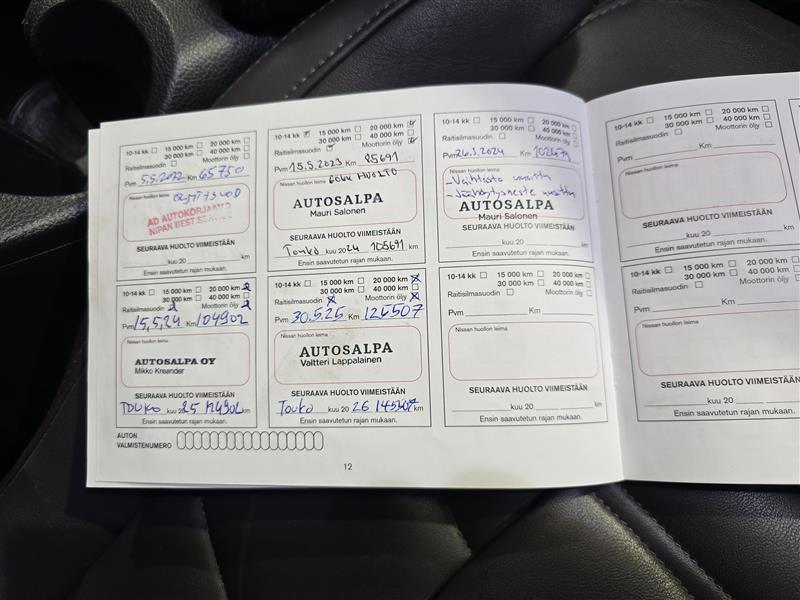 10-14 kk 15 000 km 20 000 km
30 000 km 40 000 km
Raitisilmasuodin Moottorin öljy
Pvm 5.5.2022 Km 65750
Nissan huollon leima
AD AUTOKORJAAMO
NIPAN BEST
SEURAAVA HUOLTO VIIMEISTÄÄN
kuu 20 km
Ensin saavutetun rajan mukaan.
10-14 kk 15 000 km 20 000 km
30 000 km 40 000 km
Raitisilmasuodin Moottorin öljy
Pvm 15.5.2023 Km 85691
Nissan huollon leima
60kk HUOLTO
AUTOSALPA
Mauri Salonen
SEURAAVA HUOLTO VIIMEISTÄÄN
Touko kuu 2024 105691 km
Ensin saavutetun rajan mukaan.
10-14 kk 15 000 km 20 000 km
30 000 km 40 000 km
Raitisilmasuodin Moottorin öljy
Pvm 26.3.2024 Km
Nissan huollon leima
- Vaihteisto
- Jäähdytysneste
AUTOSALPA
Mauri Salonen
SEURAAVA HUOLTO VIIMEISTÄÄN
kuu 20 km
Ensin saavutetun rajan mukaan.
10-14 kk 15 000 km 20 000 km
30 000 km 40 000 km
Raitisilmasuodin Moottorin öljy
Pvm Km
Nissan huollon leima
SEURAAVA HUOLTO VIIMEISTÄÄN
kuu 20
Ensin saavutetun rajan mukaan.
10-14 kk 15 000 km 20 000 km
30 000 km 40 000 km
Raitisilmasuodin Moottorin öljy
Pvm 15.5.24 Km 104902
Nissan huollon leima
AUTOSALPA OY
Mikko Kreander
SEURAAVA HUOLTO VIIMEISTÄÄN
TOUKO kuu 2025 124902 km
Ensin saavutetun rajan mukaan.
10-14 kk 15 000 km 20 000 km
30 000 km 40 000 km
Raitisilmasuodin Moottorin öljy
Pvm 30.5.25 Km 125507
Nissan huollon leima
AUTOSALPA
Valtteri Lappalainen
SEURAAVA HUOLTO VIIMEISTÄÄN
Touko kuu 20 26 145507 km
Ensin saavutetun rajan mukaan.
10-14 kk 15 000 km 20 000 km
30 000 km 40 000 km
Raitisilmasuodin Moottorin öljy
Pvm Km
Nissan huollon leima
SEURAAVA HUOLTO VIIMEISTÄÄN
kuu 20 km
Ensin saavutetun rajan mukaan.
10-14 kk 15 000 km 20 000
30 000 km 40 000 km
Raitisilmasuodin Moottorin öljy
Pvm Km
Nissan huollon leima
SEURAAVA HUOLTO VIIMEISTÄÄN
kuu 20
Ensin saavutetun rajan mukaan.
AUTON
VALMISTENUMERO
12